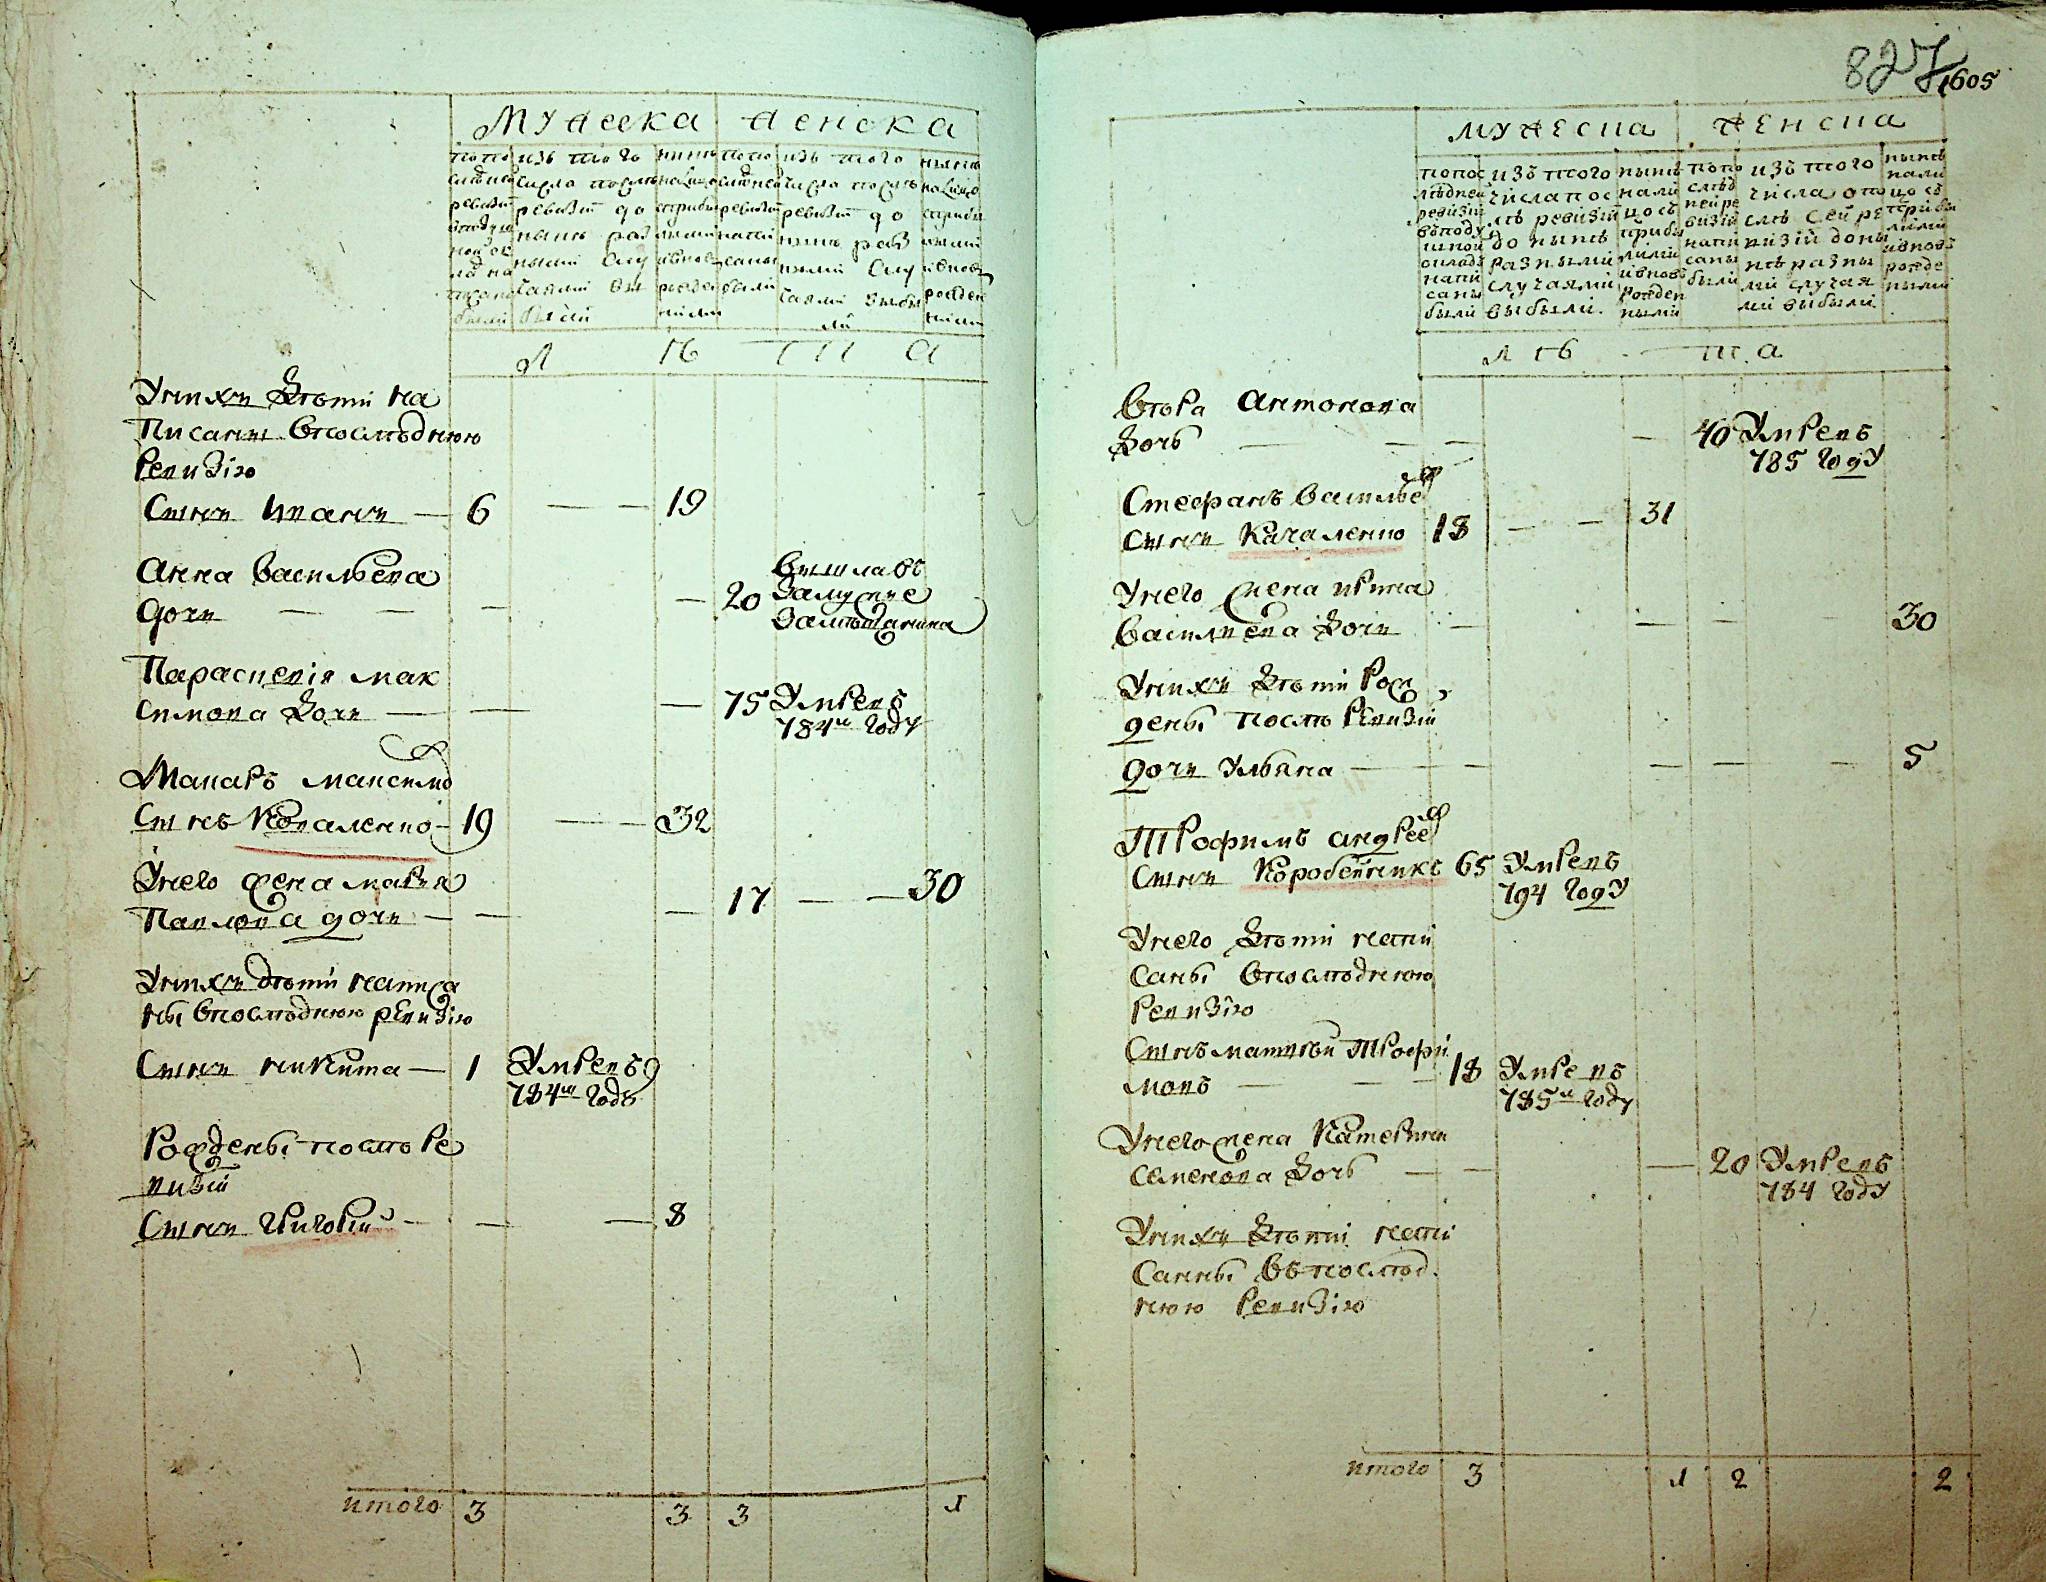 827
1605
МУЖЕСКА ЖЕНСКА
попо
следней
ревизи
в подуш
ной ок
лад на
писаны
были
изъ того
числа послѣ
ревизіи до
нынѣ раз
ными слу
чаями вы
были
нынѣ
налицо
с прибы
лыми
и вновь
рожден
ными
попо
следней
ревизіи
напи
саны
были
изъ того
числа послѣ
ревизіи до
нынѣ раз
ными слу
чаями выбы
ли
нынѣ
налицо
с прибы
лыми
и вновь
рожден
ными
Л Ѣ Т А
У нихъ дѣти на
писаны в последнюю
ревизію
Сынъ Иванъ 6 19
Анна Васильева
дочь 20 Вышла въ
замужье
за мѣщанина
Параскевія Мак
симова дочь 75 Умре въ
784м году
Макаръ Максимов
Сынъ Коваленко 19 32
У него жена Марья
Павлова дочь 17 30
У нихъ дѣти написа
ны в последнюю ревизію
Сынъ Никита 1 Умре въ
784м году
Рождены послѣ ре
визіи
Сынъ Григорій 8
итого 3 3 3 1
МУЖЕСКА ЖЕНСКА
по пос
лѣдней
ревизіи
въ поду
шной
окладъ
напи
саны
были
изъ того
числа пос
лѣ ревизіи
до нынѣ
разными
случаями
выбыли.
нынѣ
нали
цо съ
прибы
лыми
и вновь
рожден
ными
по по
слѣд
ней ре
визіи
напи
саны
были
изъ того
числа о по
слѣ сей ре
визіи до ны
нѣ разны
ми случая
ми выбыли
нынѣ
нали
цо съ
прибы
лыми
и вновь
рожде
ными
Л Ѣ Т А
Втора Антонова
дочь 40 Умре въ
785 году
Стефанъ Василье
сынъ Качаленко 18 31
У него жена Ирина
Васильева дочь 30
У нихъ дѣти рож
дены послѣ ревизіи
дочь Ульяна 5
Трофимъ Андрее
Сынъ Коробейникъ 65 Умре въ
794 году
У него дѣти напи
саны в последнюю
ревизію
Сынъ Матвѣй Трофи
мовъ 18 Умре въ
785м году
У него жена Катерина
Семенова дочь 20 Умре въ
784 году
У нихъ дѣти напи
санны въ послед
нюю ревизію
итого 3 1 2 2